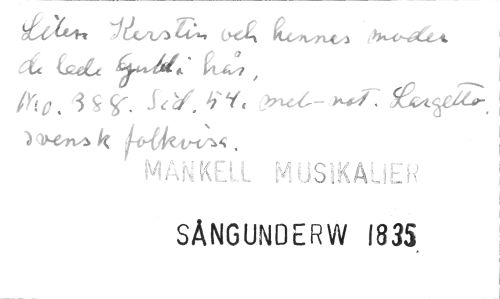 Liten Kerstin och hennes moder
de lade i hår,
No. 388. Sid. 54. mel-not. Largetto.
svensk folkvisa.
MANKELL MUSIKALIER
SÅNGUNDERW 1835